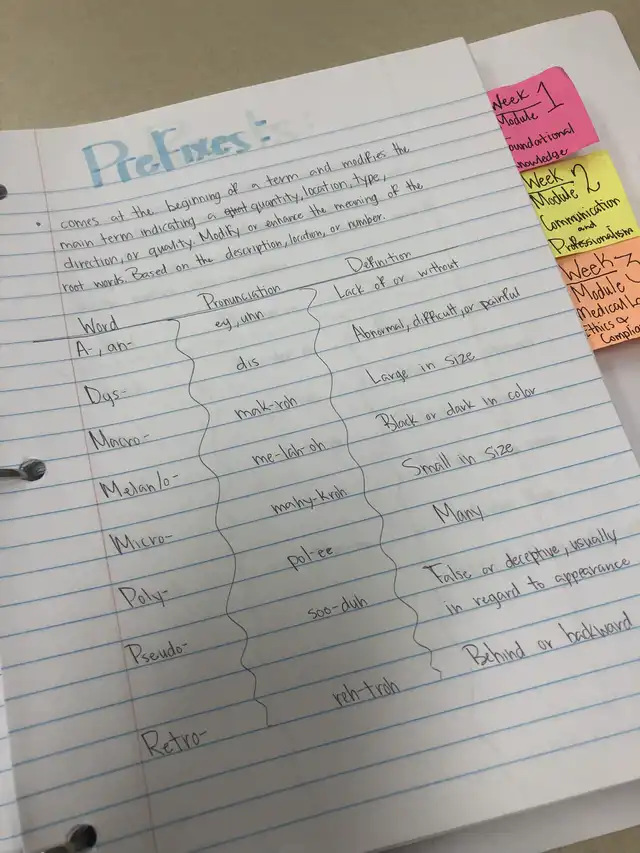 Prefixes:
• comes at the beginning of a term and modifies the
main term indicating a quantity, location, type,
direction, or quality. Modify or enhance the meaning of the
root words. Based on the description, location, or number.
Word Pronunciation Definition
A-, an- ey, uhn Lack of or without
Dys- dis Abnormal, difficult, or painful
Macro- mak-roh Large in size
Melan/o- me-lah-oh Black or dark in color
Micro- mahy-kroh Small in size
Poly- pol-ee Many
Pseudo- soo-duh False or deceptive, usually
in regard to appearance
Retro- reh-troh Behind or backward
Week 1
Module
Foundational
Knowledge
Week 2
Module
Communication
and
Professionalism
Week 3
Module
Medical
Ethics &